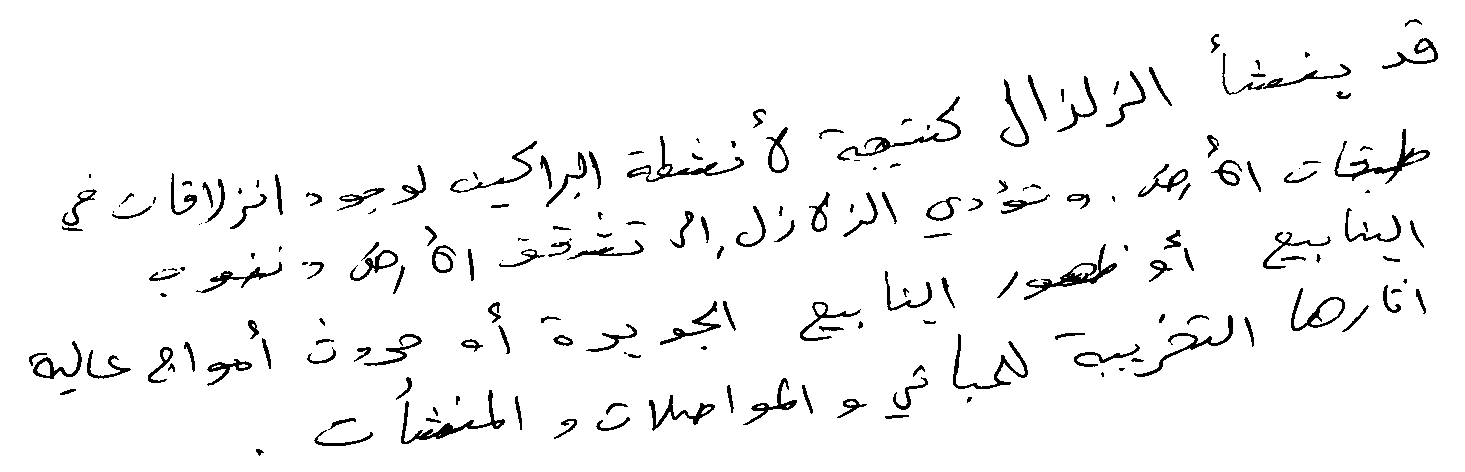 قد ينشأ الزلزال كنتيجة لأنشطة البراكين لوجود انزلاقات في
طبقات الأرض. وتؤدي الزلازل إلى تشقق الأرض ونضوب
الينابيع أو ظهور الينابيع الجديدة أو حدوث أمواج عالية
اثارها التخريبية للمباني والمواصلات والمنشأت .